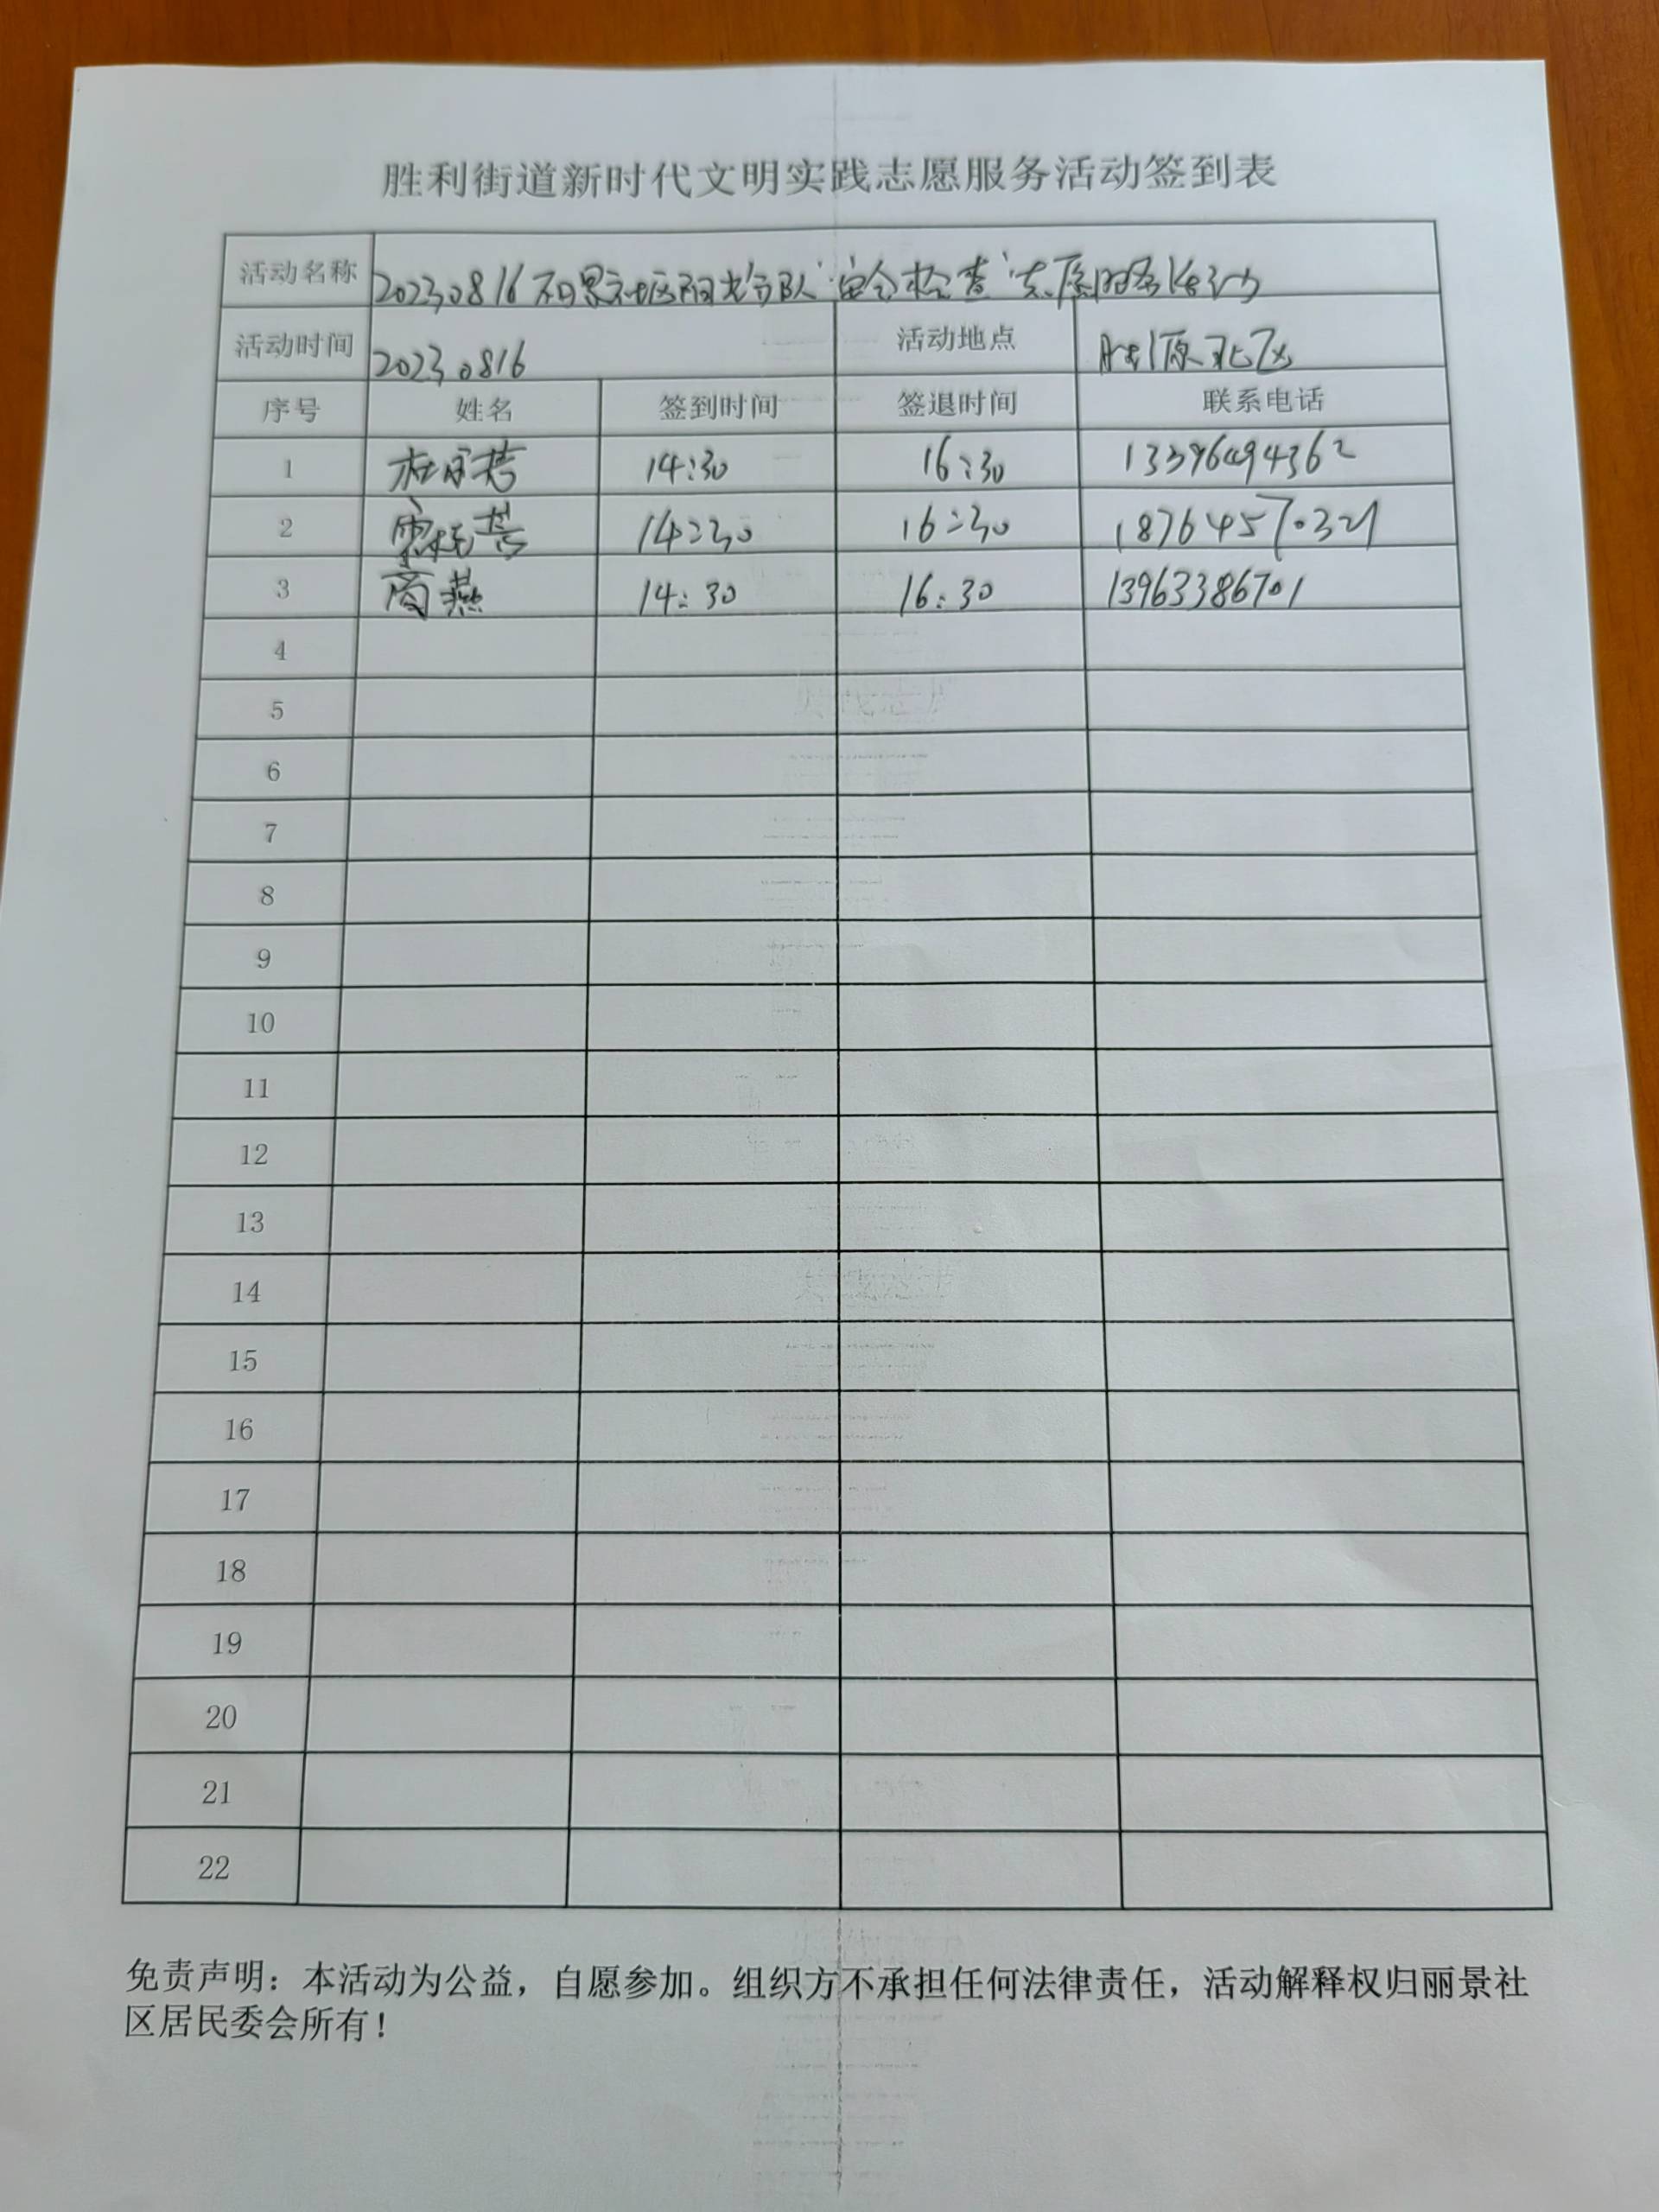 胜利街道新时代文明实践志愿服务活动签到表
活动名称 20230816丽景社区阳光分队“安全检查”志愿服务活动
活动时间 20230816 活动地点 胜利原北区
序号 姓名 签到时间 签退时间 联系电话
1 14:30 16:30
2 14:30 16:30 18764570321
3 商燕 14:30 16:30 13963386701
4
5
6
7
8
9
10
11
12
13
14
15
16
17
18
19
20
21
22
免责声明：本活动为公益，自愿参加。组织方不承担任何法律责任，活动解释权归丽景社
区居民委会所有！